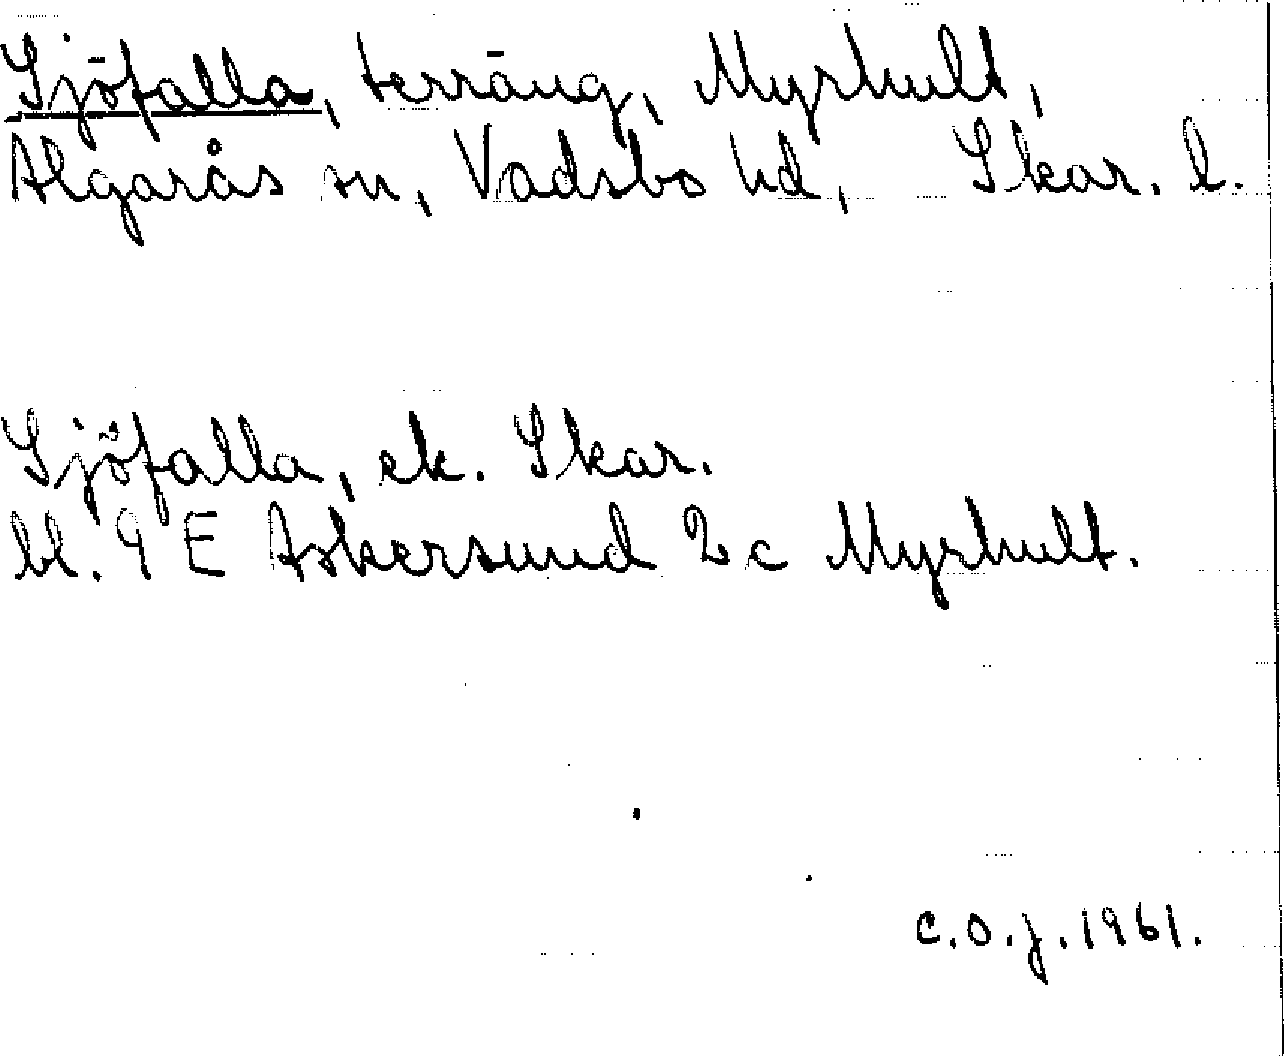 Sjöfalla, terräng, Myrhult,
Älgarås sn, Vadsbo hd, Skar. l.
Sjöfalla, ek. Skar.
bl. 9 E Askersund 2 c Myrhult.
C.O.J. 1961.